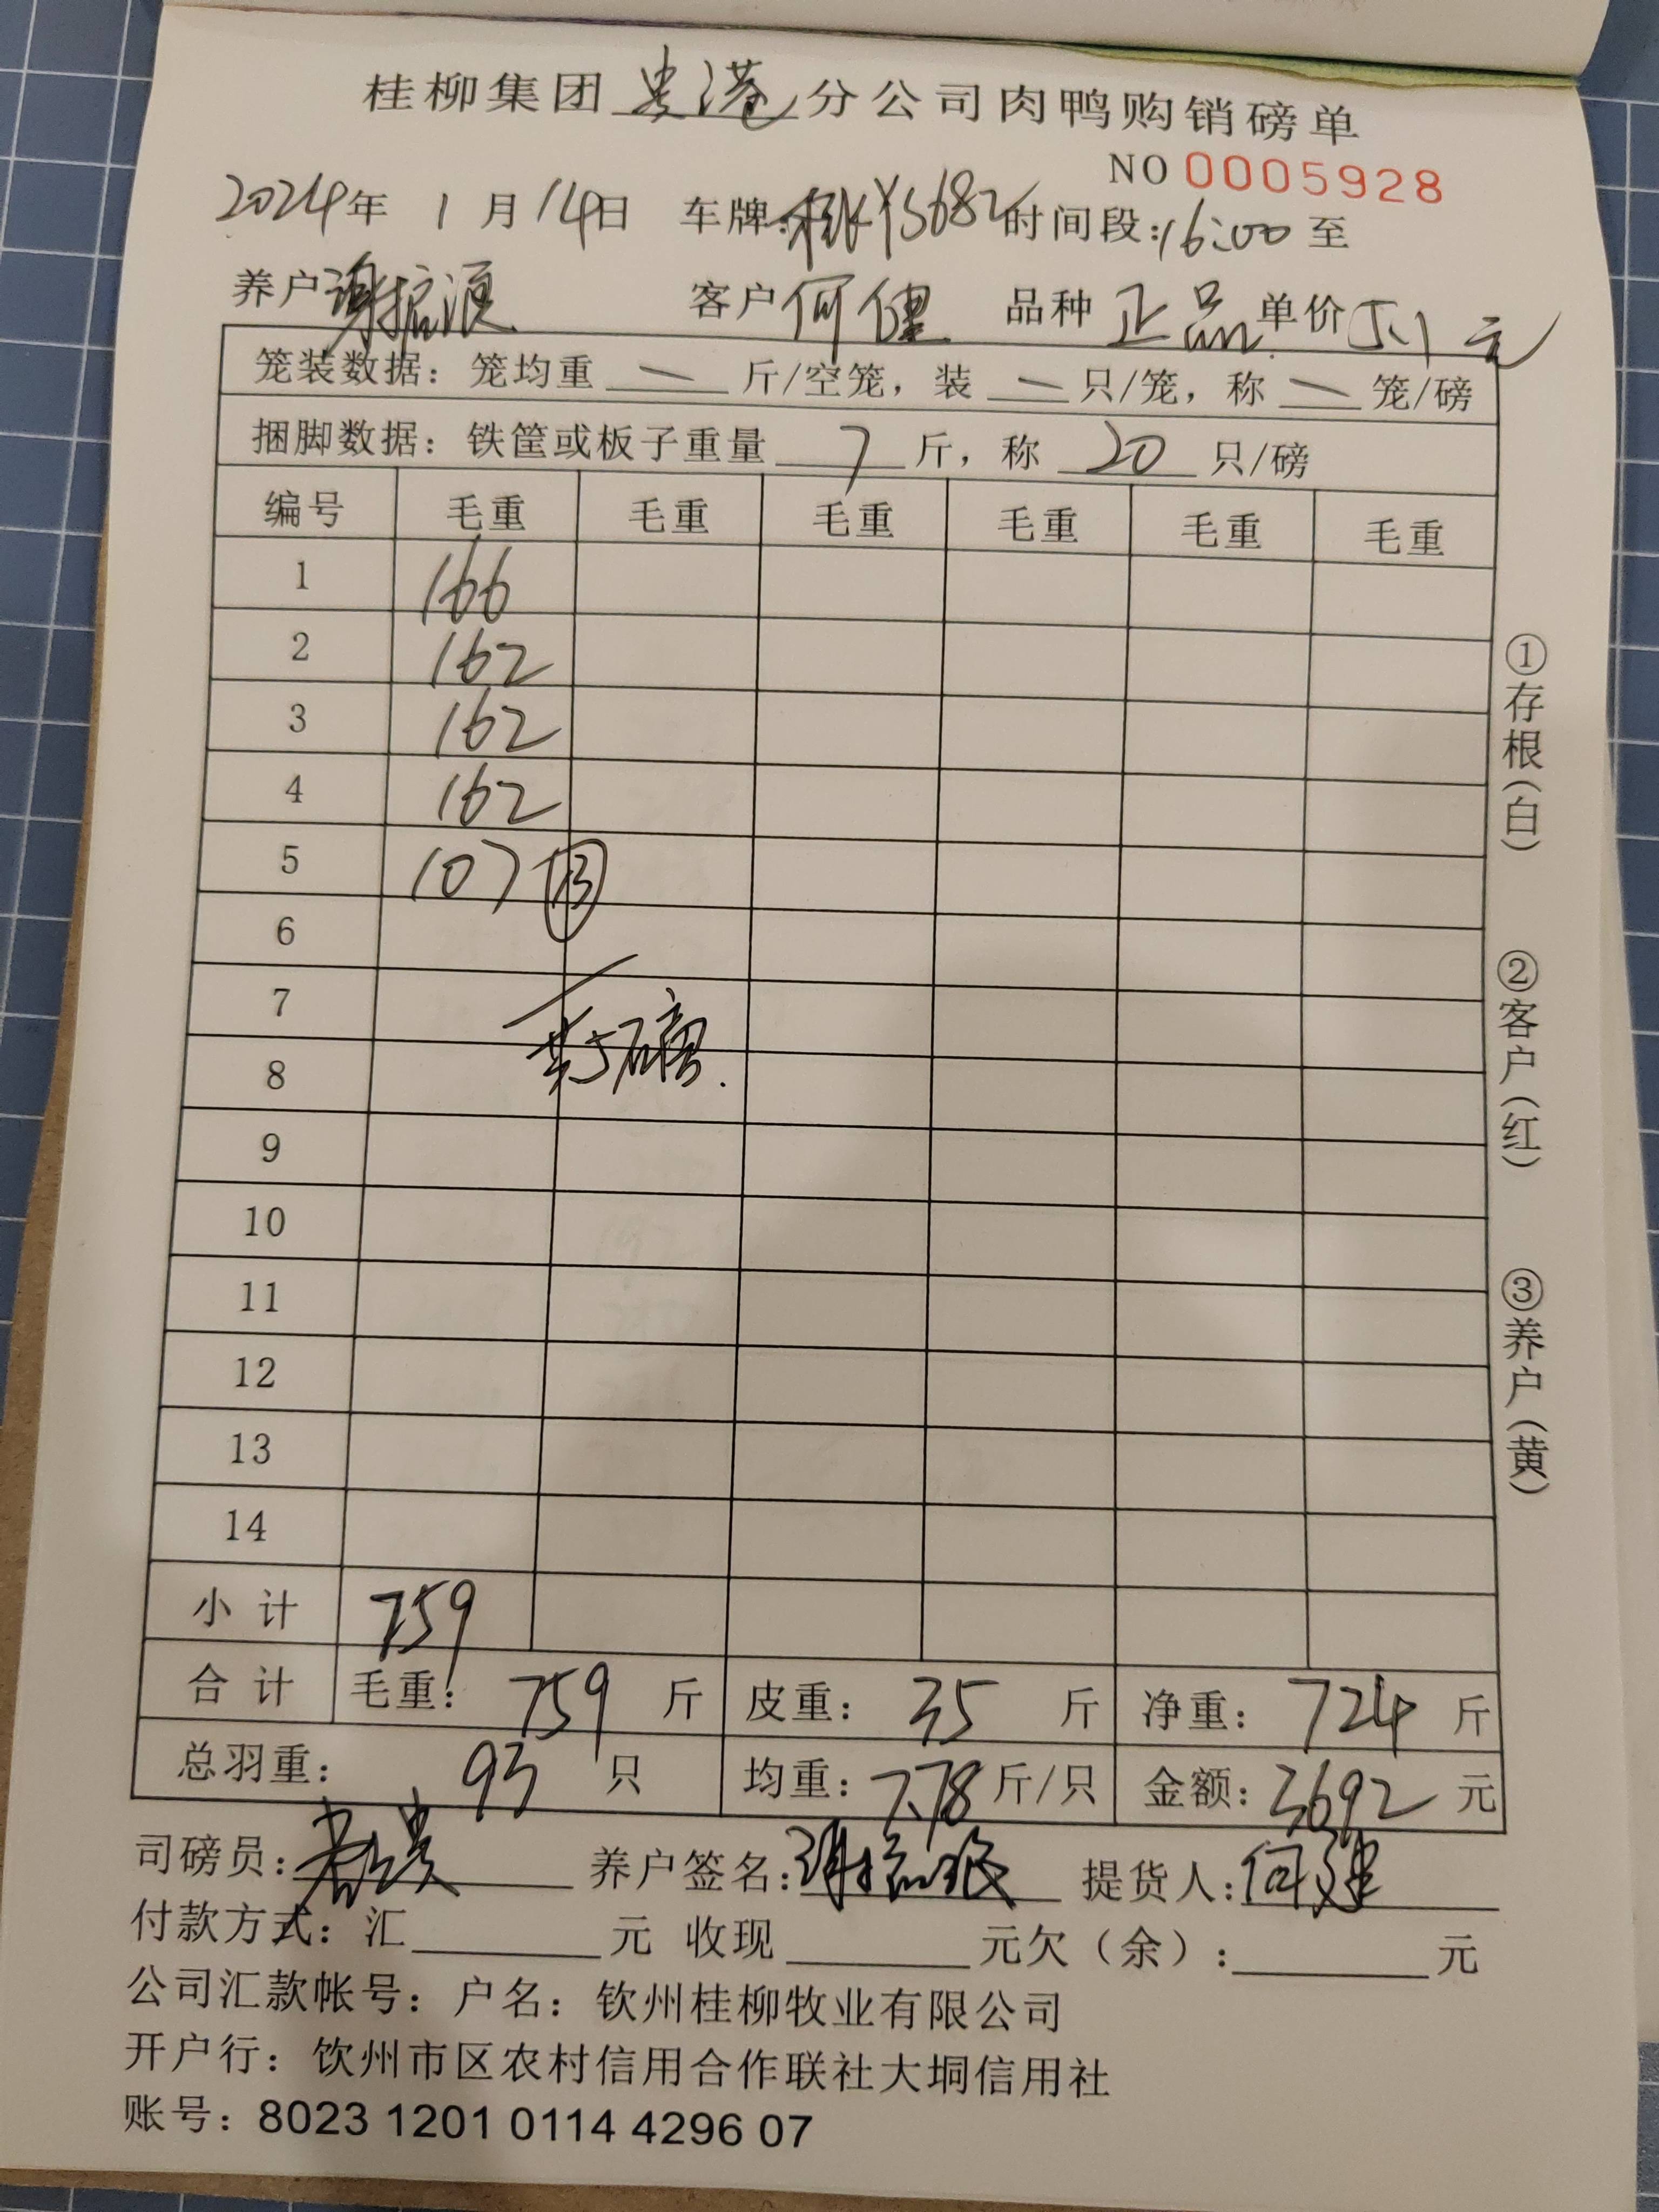 桂柳集团贵港分公司肉鸭购销磅单
NO 0005928
2024年 1月14日 车牌:桂KY5682 时间段:16:00 至
养户 谢振源 客户 何健 品种 正品 单价 5.1 元
笼装数据：笼均重 — 斤/空笼，装 — 只/笼，称 — 笼/磅
捆脚数据：铁筐或板子重量 7 斤，称 20 只/磅
编号 毛重 毛重 毛重 毛重 毛重 毛重
1 166
2 162
3 162
4 162
5 107 ⑬
6
7
共5磅.
8
9
10
11
12
13
14
小计 759
合计 毛重：759 斤 皮重：35 斤 净重：724 斤
总羽重：93 只 均重：7.78 斤/只 金额：3692 元
司磅员： 养户签名： 提货人：何健
付款方式：汇 元 收现 元欠（余）： 元
公司汇款帐号：户名：钦州桂柳牧业有限公司
开户行：钦州市区农村信用合作联社大垌信用社
账号：8023 1201 0114 4296 07
①存根（白）
②客户（红）
③养户（黄）